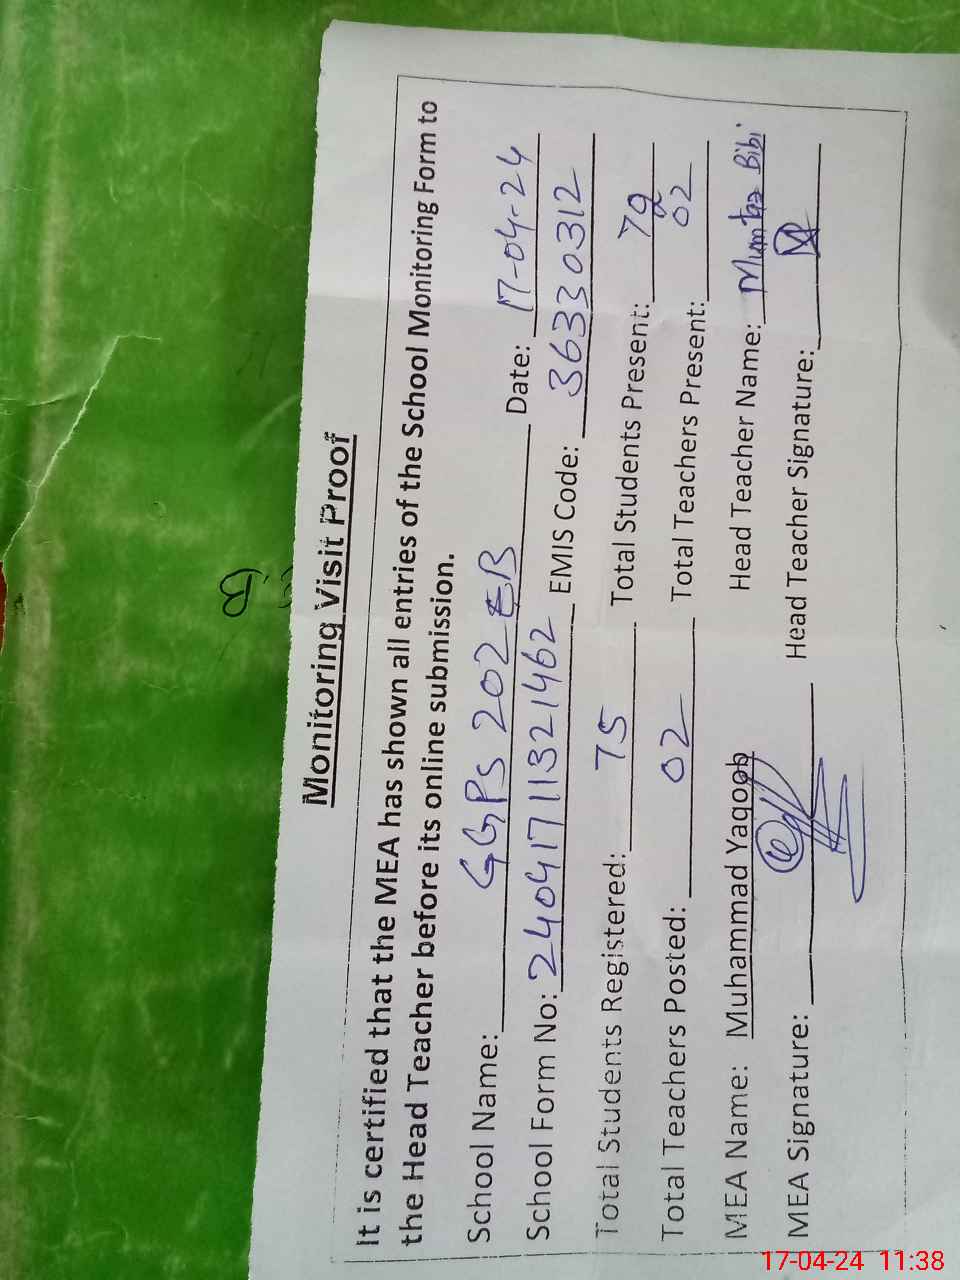 Monitoring Visit Proof
It is certified that the MEA has shown all entries of the School Monitoring Form to
the Head Teacher before its online submission.
School Name: GGPS 202 EB Date: 17-04-24
School Form No: 24041711321462 EMIS Code: 36330312
Total Students Registered: 75 Total Students Present:
Total Teachers Posted: 02 Total Teachers Present: 02
MEA Name: Muhammad Yaqoob Head Teacher Name: Mumtaz Bibi
MEA Signature: Head Teacher Signature:
17-04-24 11:38